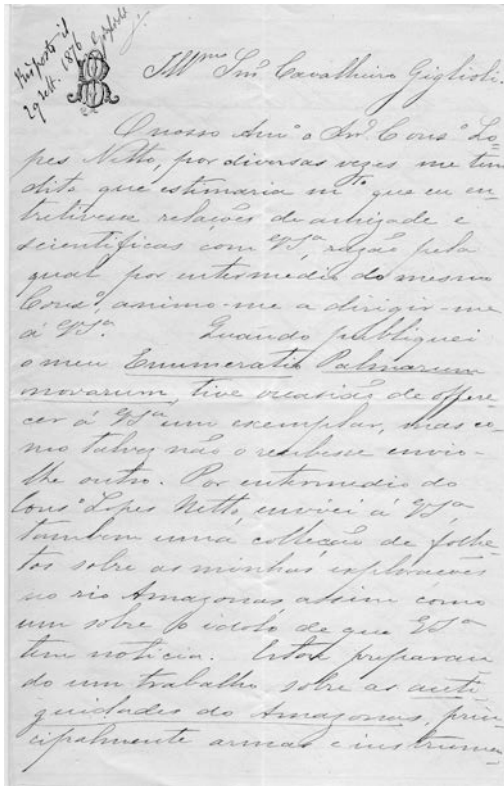 Risposto il
29 sett. 1876
Illmo Snr Cavalheiro Giglioli.
O nosso Amo o Snr. Conso Lo-
pes Netto, por diversas vezes me tem
dito que estimaria mto que eu en-
tretivesse relações de amizade e
scientificas com VSa, razão pela
qual por intermedio do mesmo
Conso, animo-me a dirigir-me
á VSa. Quando publiquei
o meu Enumeratio Palmarum
novarum, tive occasião de offere-
cer á VSa um exemplar, mas co-
mo talvez não o recebesse envio-
lhe outro. Por intermedio do
Conso Lopes Netto, enviei á VSa,
tambem uma collecção de folhe-
tos sobre as minhas explorações
no rio Amazonas assim como
um sobre o idolo de que VSa
tem noticia. Estou preparan-
do um trabalho sobre as anti-
guidades do Amazonas, prin-
cipalmente armas e instrumen-